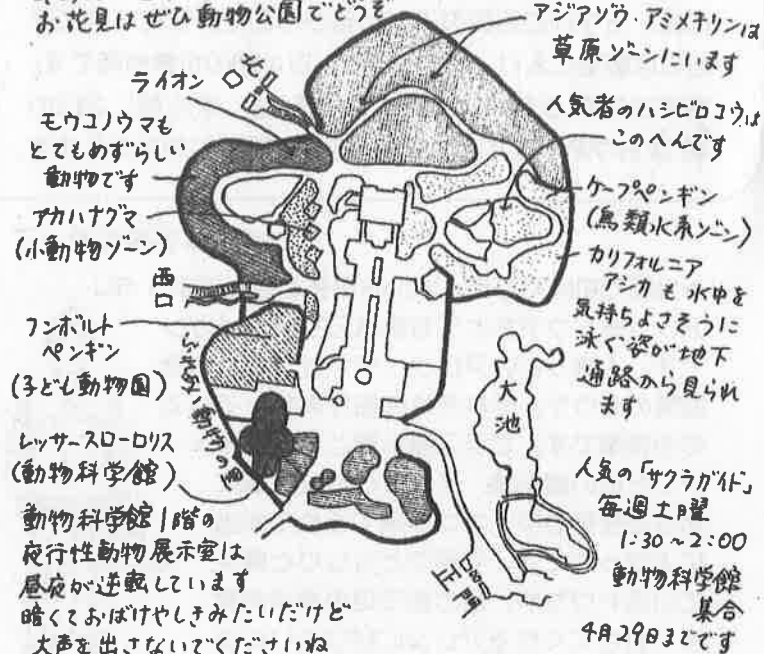 お花見はぜひ動物公園でどうぞ
アジアゾウ・アミメキリンは
草原ゾーンにいます
ライオン
人気者のハシビロコウは
このへんです
モウコノウマも
とてもめずらしい
動物です
ケープペンギン
(鳥類水系ゾーン)
アカハナグマ
(小動物ゾーン)
カリフォルニア
アシカも水中を
気持ちよさそうに
泳ぐ姿が地下
通路から見られ
ます
西口
フンボルト
ペンギン
(子ども動物園)
ふれあい動物の里
大池
レッサースローロリス
(動物科学館)
人気の「サクラガイド」
毎週土曜
1:30~2:00
動物科学館
集合
4月29日までです
正門
動物科学館1階の
夜行性動物展示室は
昼夜が逆転しています
暗くておばけやしきみたいだけど
大声を出さないでくださいね